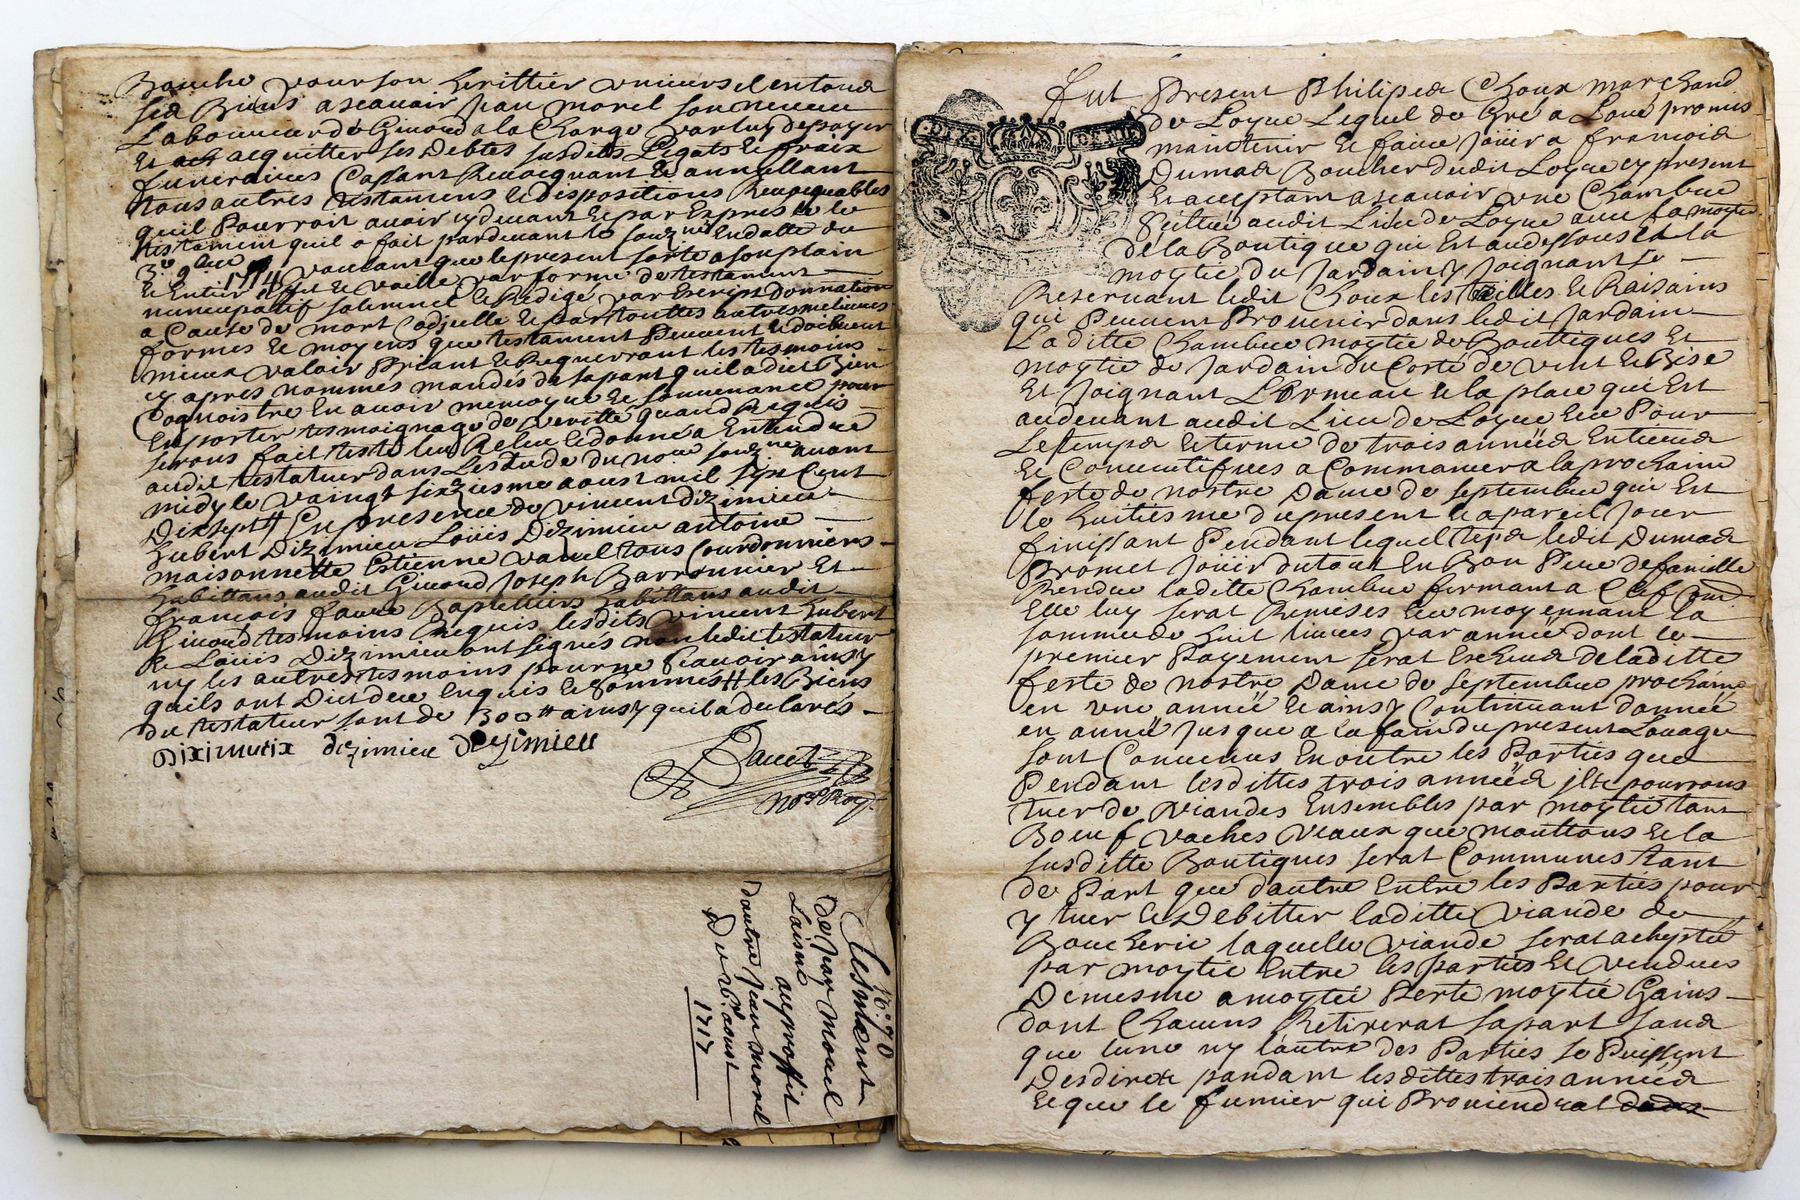 Bouche pour son herittier univers el en tous
ses Biens ascauoir Jean morel son neueu
Laboureur de Giuord a la Charge par luy de payer
Et acquitter ses Debtes susdits Legats & fraix
funeraires Cassant Reuocquant & annullant
tous autres testamens & dispositions Reuocquables
quil Pourroit auoir cy deuant & par Expres le
testament quil a fait pardeuant le souz.né En datte du
3.e 9bre 1714 voulant que le present sorte a son plain
& Entier effet & vaille par forme de testament
nuncupatif solemnel & Redigé par Escript donnation
a Cause de mort Codicille & par touttes autres meilieures
formes & moyens que testament Peuuent & doibuent
mieux valoir Priant & Requerrant les tesmoins
cy apres nommés mandés de sa part quil a dict Bien
Cognoistre En auoir memoyre & souuenance pour
En porter tesmoignage de veritté quand Requis
serons fait Leu Releu & donné a Entendre
audit testateur dans Lestude du no.re souz.né auant
midy le vaingt sixiesme aoust mil sept Cent
Dixsept En presence de vincent dizimieu
hubert Dizimieu Loüis Dizimieu antoine
maisonnette Estienne tous Courdonniers
habittans audit Giuord Joseph Barronnier Et
francois faure habittans audit
Giuord tesmoins Requis lesdits vincent hubert
& Loüis Dizimieu ont signés non ledit testateur
ny les autres tesmoins pour ne scauoir ainsy
quils ont Dict de ce Enquis & sommés les Biens
du testateur sont de 300 ainsy quil a declarés
dizimieu dezimieu
no.re Roy.
N.° 90
testament
de Jean Morel
Laisné
au proffit
dautre Jean morel
Du 26.e aoust
1717
DIX DEN
fut Present Philipes Choux marchand
de Loyue Lequel de Gré a Loué promis
maintenir & faire Jouir a francois
Dumas Boucher dudit Loyue cy present
& acceptant ascauoir vne Chambre
scittué audit Lieu de Loyue auec la moytie
de la Boutique qui Est audessous & la
moytie du Jardain y Joignant se
Reseruant ledit Choux les feuilles & Raisains
qui Peuuent Prouenir dans ledit Jardain
Laditte Chambre moytie de Bouttiques Et
moytie de Jardain du Costé de vent & Bise
Et Joignant L'ormeau & la place qui Est
audeuant audit Lieu de Loyue & ce Pour
Le temps & terme de trois années Entieres
& Consecutifues a Commancer a la prochaine
feste de nostre Dame de septembre qui Est
le huitiesme du present & a pareil Jour
finissant Pendant lequel temps ledit Dumas
Promet Jouir du tout En Bon Pere de famille
Rendre laditte Chambre fermant a Clef
Elle luy serat Remises & ce moyennant la
somme de huit liures par année dont le
premier Payement serat Escheus de laditte
feste de nostre Dame de septembre prochaine
en vne année & ainsy Continuant dannée
en année Jusque a la fain du present Louage
sont Conuenus En outre les Parties que
Pendant lesdittes trois années pourrons
tuer de viandes Ensembles par moytie tant
Boeuf vaches veaux que mouttons & la
susditte Boutiques serat Communes tant
de Part que dautre Entre les Parties pour
y tuer & Debitter laditte viande de
Boucherie laquelle viande serat acheptée
par moytie Entre les parties & vendues
De mesme a moytié Perte moytie Gains
dont Chacuns Retirerat sa part sans
que lune ny lautre des Parties se Puissent
Desdire pandant lesdittes trois années
& que le fumier qui Prouiendrat